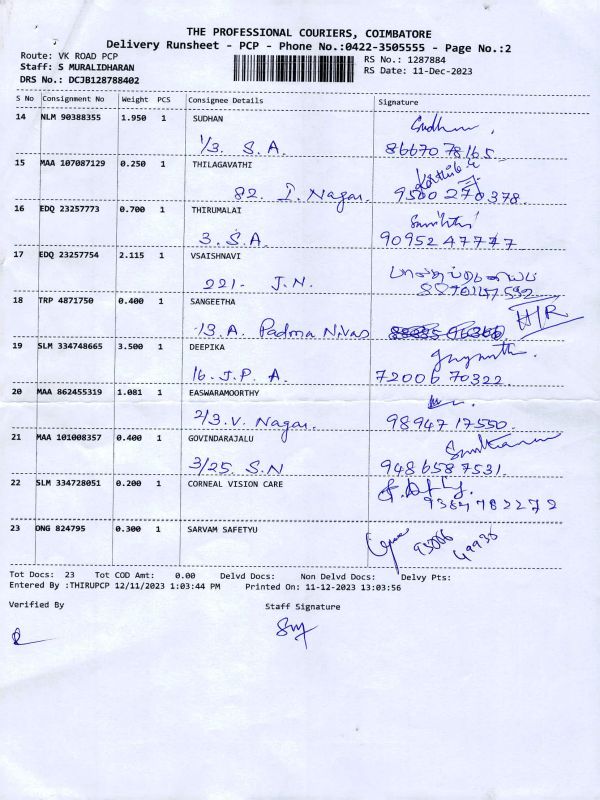 THE PROFESSIONAL COURIERS, COIMBATORE
Delivery Runsheet - PCP - Phone No.:0422-3505555 - Page No.:2
Route: VK ROAD PCP
Staff: S MURALIDHARAN
DRS No.: DCJB128788402
RS No.: 1287884
RS Date: 11-Dec-2023
S No Consignment No Weight PCS Consignee Details Signature
14 NLM 90388355 1.950 1 SUDHAN
1/3. S.A. 86670 78165
15 MAA 107087129 0.250 1 THILAGAVATHI
82. I. Nagar. 9500 270378.
16 EDQ 23257773 0.700 1 THIRUMALAI
3. S.A. 9095247777
17 EDQ 23257754 2.115 1 VSAISHNAVI
221- J.N.
18 TRP 4871750 0.400 1 SANGEETHA
13.A. Padma Nivas H/R
19 SLM 334748665 3.500 1 DEEPIKA
16. J.P. A. 72006 70322
20 MAA 862455319 1.081 1 EASWARAMOORTHY
2/3. V. Nagar. 98947 17550.
21 MAA 101008357 0.400 1 GOVINDARAJALU
3/25. S.N 9486587531.
22 SLM 334728051 0.200 1 CORNEAL VISION CARE
23 DNG 824795 0.300 1 SARVAM SAFETYU
Tot Docs: 23 Tot COD Amt: 0.00 Delvd Docs: Non Delvd Docs: Delvy Pts:
Entered By :THIRUPCP 12/11/2023 1:03:44 PM Printed On: 11-12-2023 13:03:56
Verified By Staff Signature